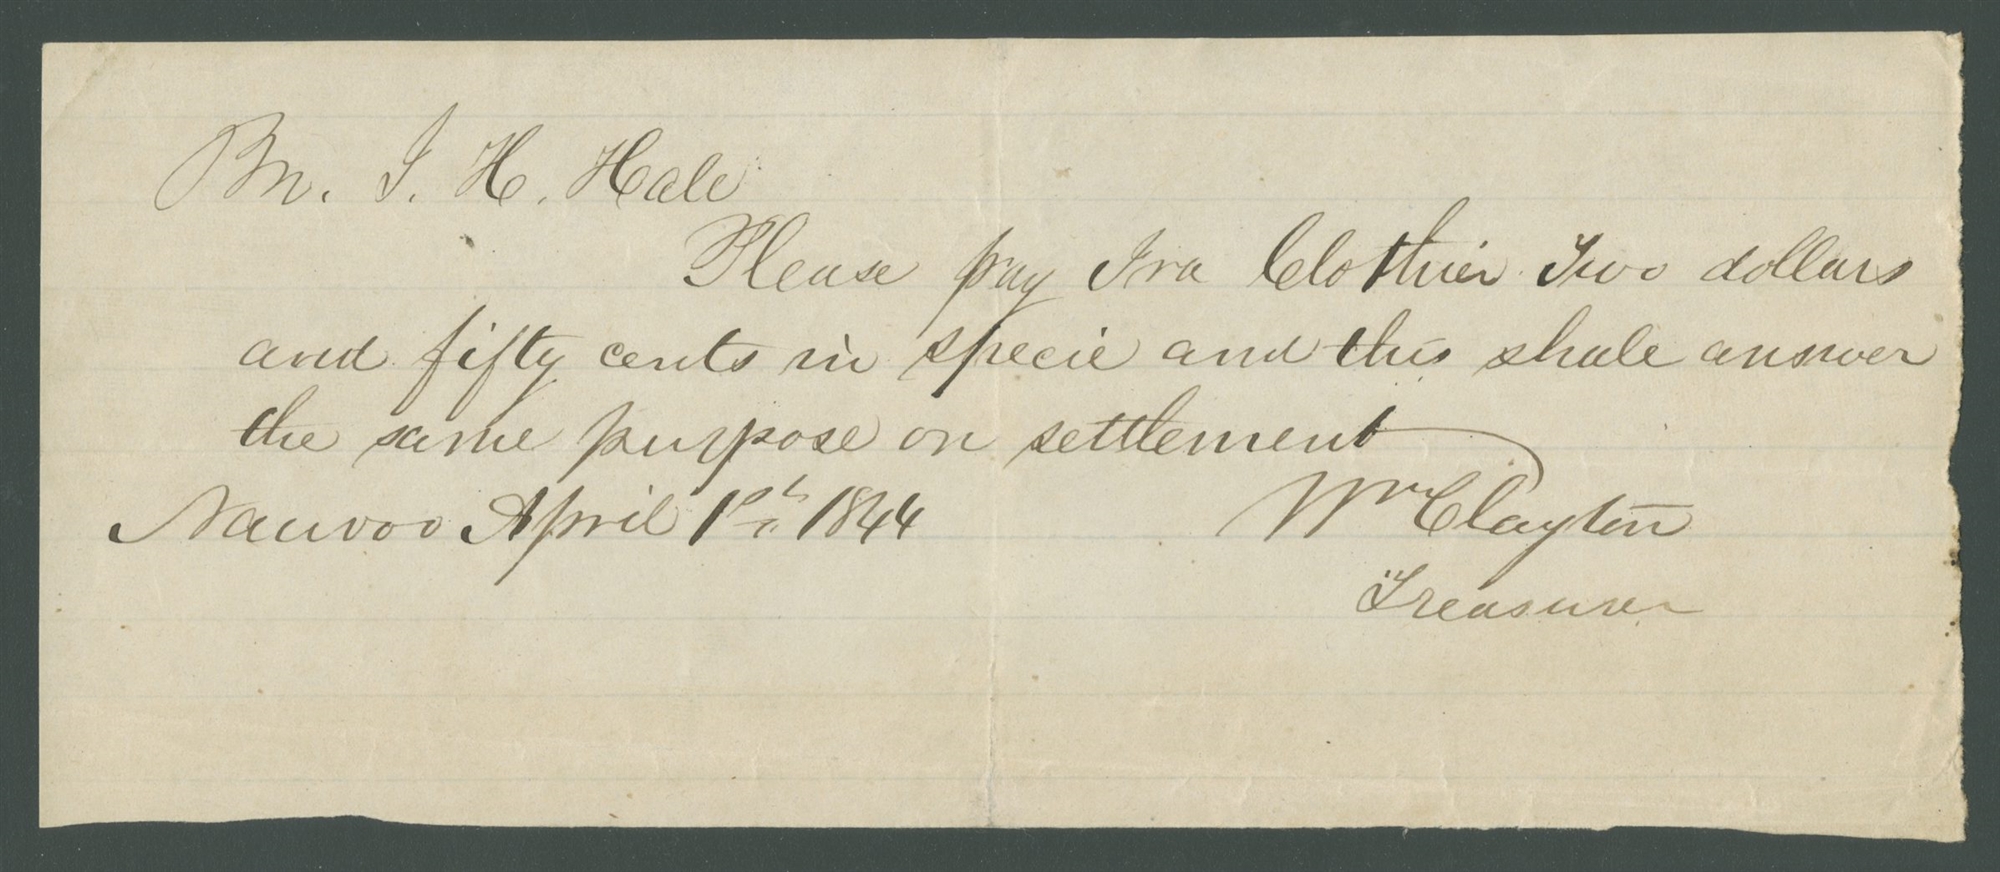 Br. J. H. Hale
Please pay Ira Clothier Two dollars
and fifty cents in specie and this shale answer
the same purpose on settlement
Nauvoo April 1st 1844 Wm Clayton
Treasurer